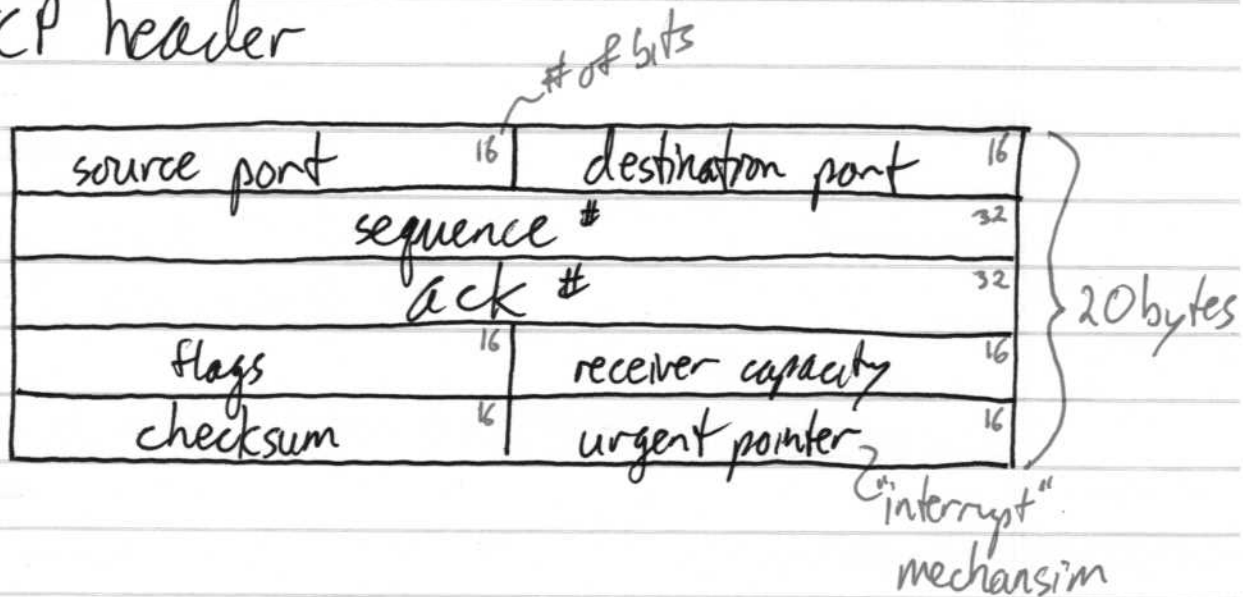 CP header
# of bits
source port 16 destination port 16
sequence # 32
ack # 32
20 bytes
flags 16 receiver capacity 16
checksum 16 urgent pointer 16
"interrupt"
mechansim